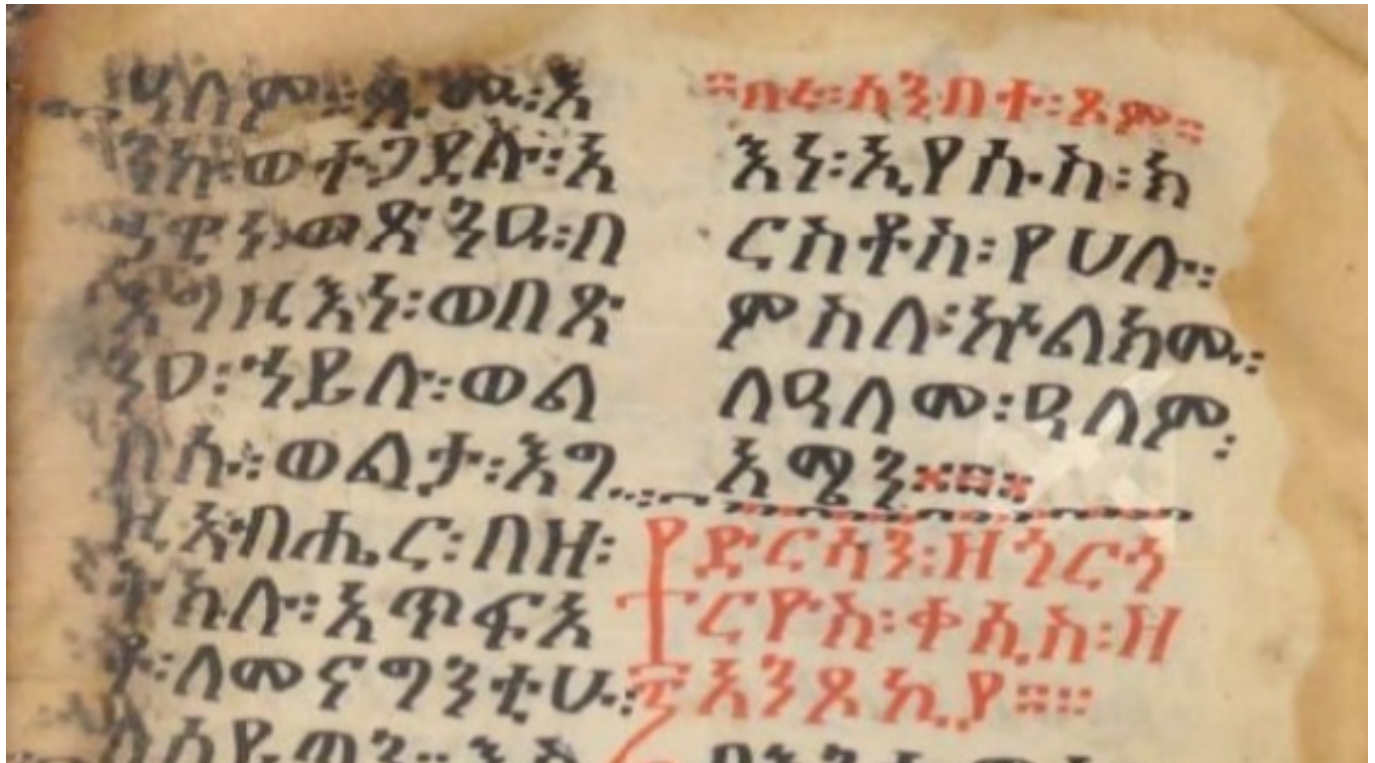 እኁ፡ወተጋደሉ፡እ
ኃዊነ፡ወጽንዑ፡በ
እግዚእነ፡ወበጽ
ንዐ፡ኀይሉ፡ወል
በሱ፡ወልታ፡እግ
ዚአብሔር፡በዘ፡
ትክሉ፡አጥፍአ
ቶ፡ለመናግንቲሁ፡
ለሰይጣን።
፡ሰንበተ፡ጾም።
እነ፡ኢየሱስ፡ክ
ርስቶስ፡የሀሉ፡
ምስለ፡ኵልክሙ፡
ለዓለመ፡ዓለም፡
አሜን።
ድርሳን፡ዘጎርጎ
ርዮስ፡ቀሲስ፡ዘ
አንጾኪያ።